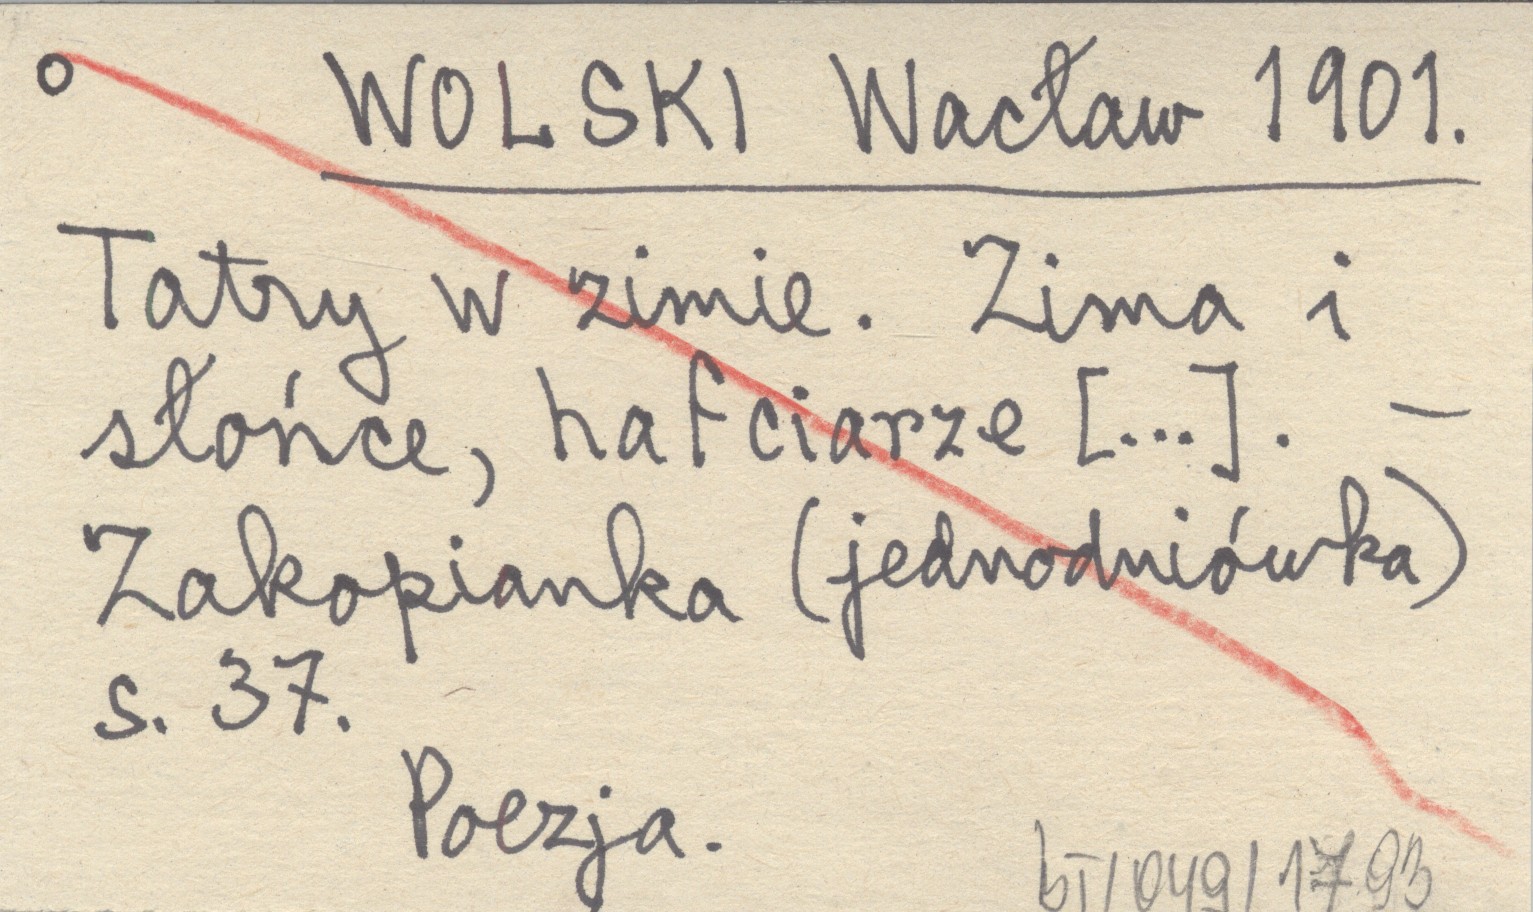 o WOLSKI Wacław 1901.
Tatry w zimie. Zima i
słońce, hafciarze [...]. –
Zakopianka (jednodniówka)
s. 37.
Poezja.
bT/049/1793